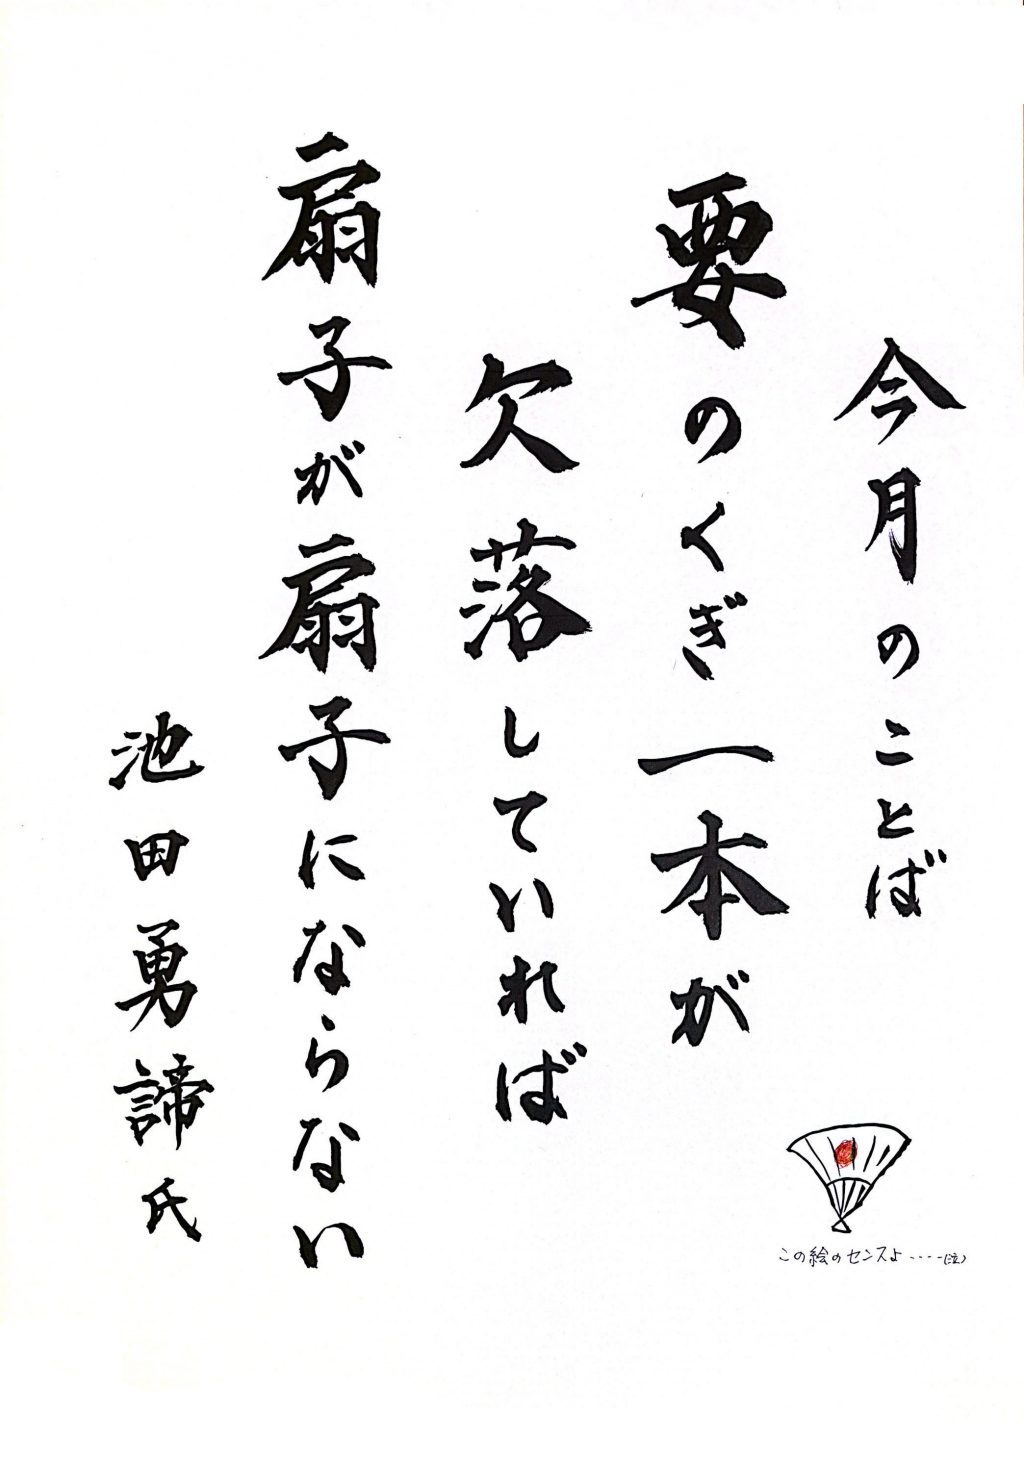 今月のことば
要のくぎ一本が
欠落していれば
扇子が扇子にならない
池田勇諦氏
この絵のセンスよ・・・・(泣)